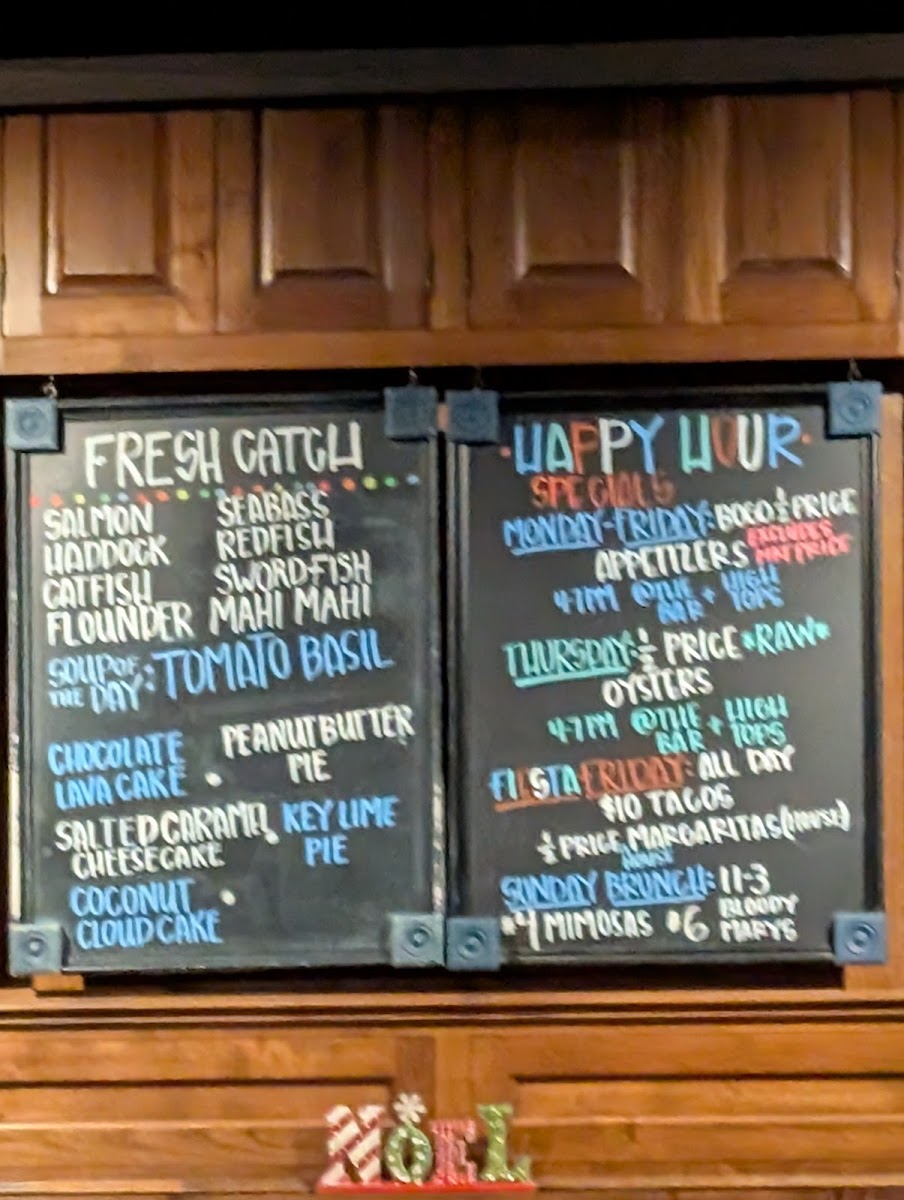 FRESH CATCH
SALMON SEABASS
HADDOCK REDFISH
CATFISH SWORDFISH
FLOUNDER MAHI MAHI
SOUP OF THE DAY: TOMATO BASIL
CHOCOLATE LAVA CAKE
PEANUT BUTTER PIE
SALTED CARAMEL CHEESECAKE
KEY LIME PIE
COCONUT CLOUD CAKE
HAPPY HOUR
SPECIALS
MONDAY-FRIDAY: BOGO ½ PRICE
APPETIZERS EXCLUDES
4-7PM @ THE BAR + HIGH TOPS
THURSDAY: ½ PRICE *RAW*
OYSTERS
4-7PM @ THE BAR + HIGH TOPS
FIESTA FRIDAY: ALL DAY
$10 TACOS
½ PRICE MARGARITAS (HOUSE)
SUNDAY BRUNCH: 11-3
$4 MIMOSAS $6 BLOODY MARYS
NOEL